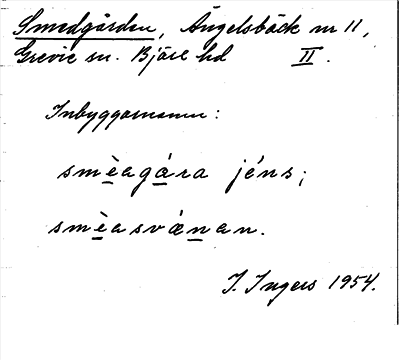 Smedgården, Ängelsbäck nr 11,
Grevie sn. Bjäre hd II.
Inbyggarnamn:
smèagára jéns;
smèasvǽnan.
I. Ingers 1954.